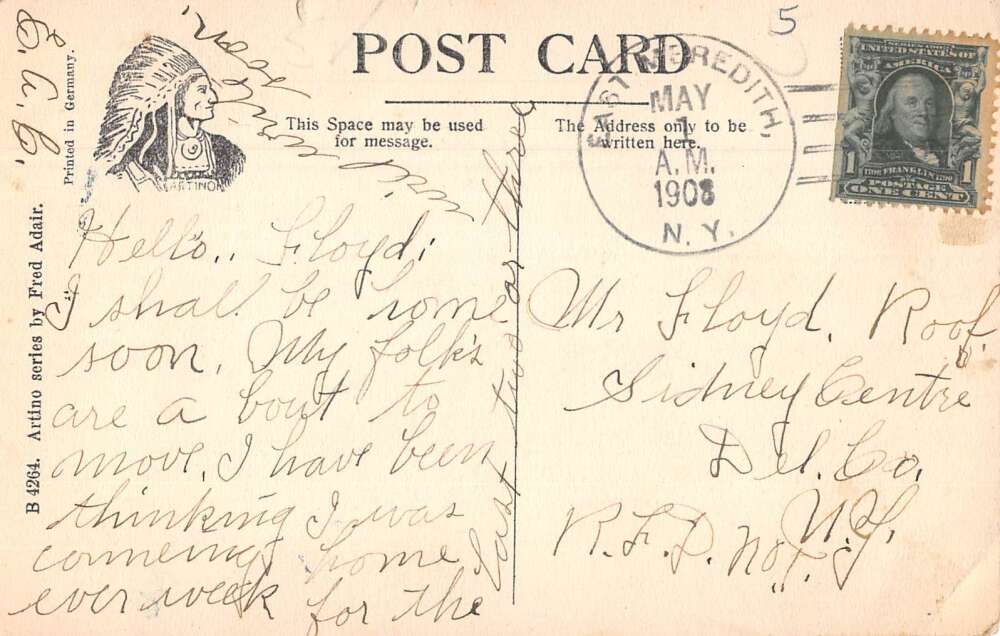 POST CARD
This Space may be used
for message.
The Address only to be
written here.
EAST MEREDITH,
MAY
1
A.M.
1908
N. Y.
5
SERIES 1902
UNITED STATES OF
AMERICA
1706 FRANKLIN 1790
POSTAGE
1 ONE CENT 1
Printed in Germany.
ARTINO
B 4264. Artino series by Fred Adair.
Hello., Floyd;
I shall be home
soon. My folks
are a bout to
move. I have been
thinking I was
comeing home
ever week for the
last two or three
E. A. C.
Mr Floyd. Roof.
Sidney Centre
Del. Co,
N. Y.
R. F. D. No 1.